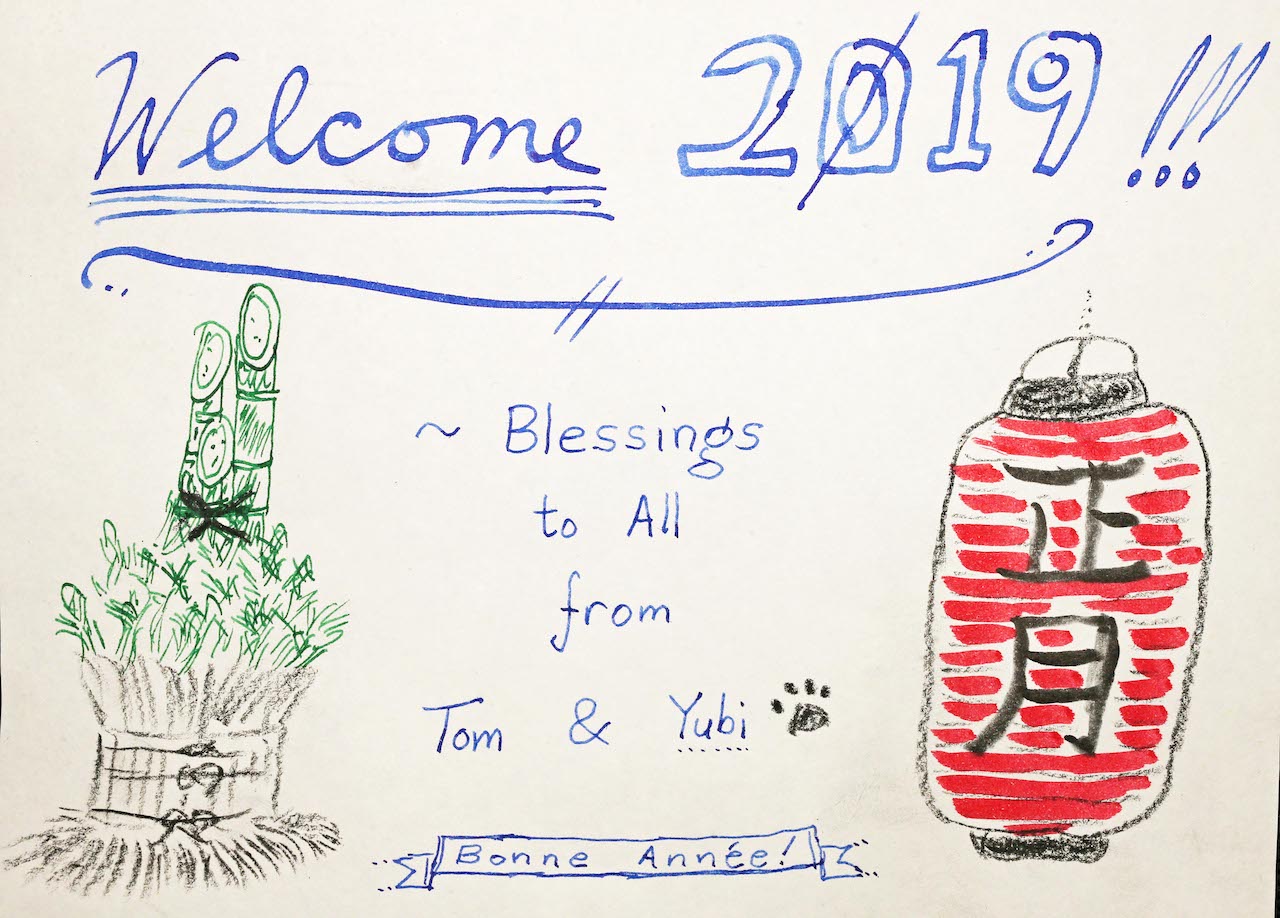 Welcome 2019 !!!
~ Blessings
to All
from
Tom & Yubi
正月
Bonne Année!